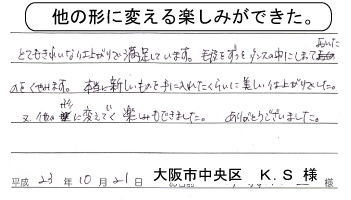 他の形に変える楽しみができた。
とてもきれいな仕上がりで満足しています。毛皮をずっとタンスの中にしまっておいた
のをくやみます。本当に新しいものを手に入れたくらいに美しい仕上がりでした。
又、他の形に変えていく楽しみもできました。ありがとうございました。
平成 23 年 10 月 21 日 大阪市中央区 K.S 様
様